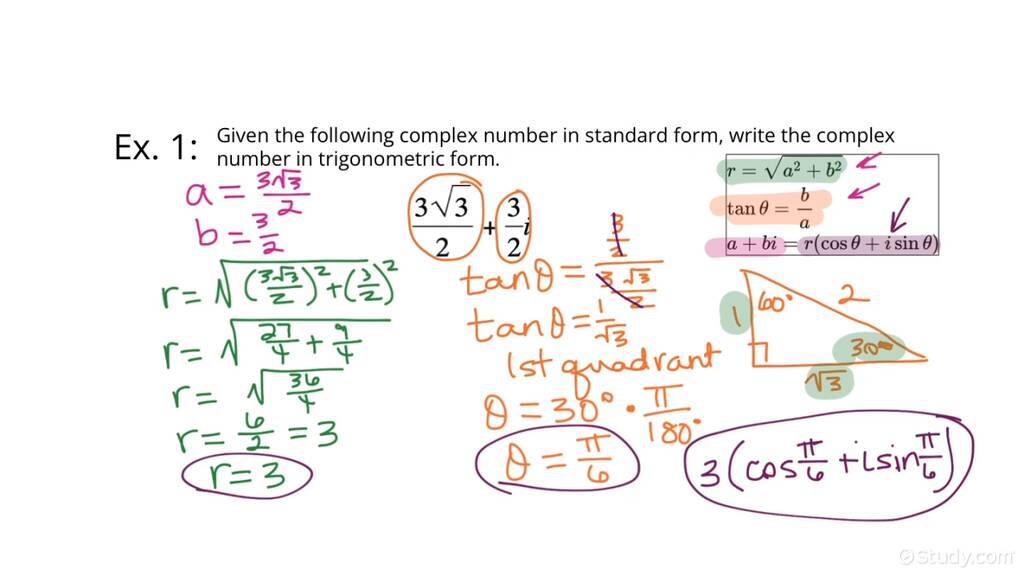 Ex. 1: Given the following complex number in standard form, write the complex
number in trigonometric form.
a = 3√3/2
b = 3/2
3√3/2 + 3/2 i
r = √(a² + b²)
tan θ = b/a
a + bi = r(cos θ + i sin θ)
r = √((3√3/2)² + (3/2)²)
r = √(27/4 + 9/4)
r = √(36/4)
r = 6/2 = 3
r = 3
tanθ = (3/2)/(3√3/2)
tanθ = 1/√3
1st quadrant
θ = 30° · π/180°
θ = π/6
60°
2
1
30°
√3
3(cos π/6 + i sin π/6)
Study.com